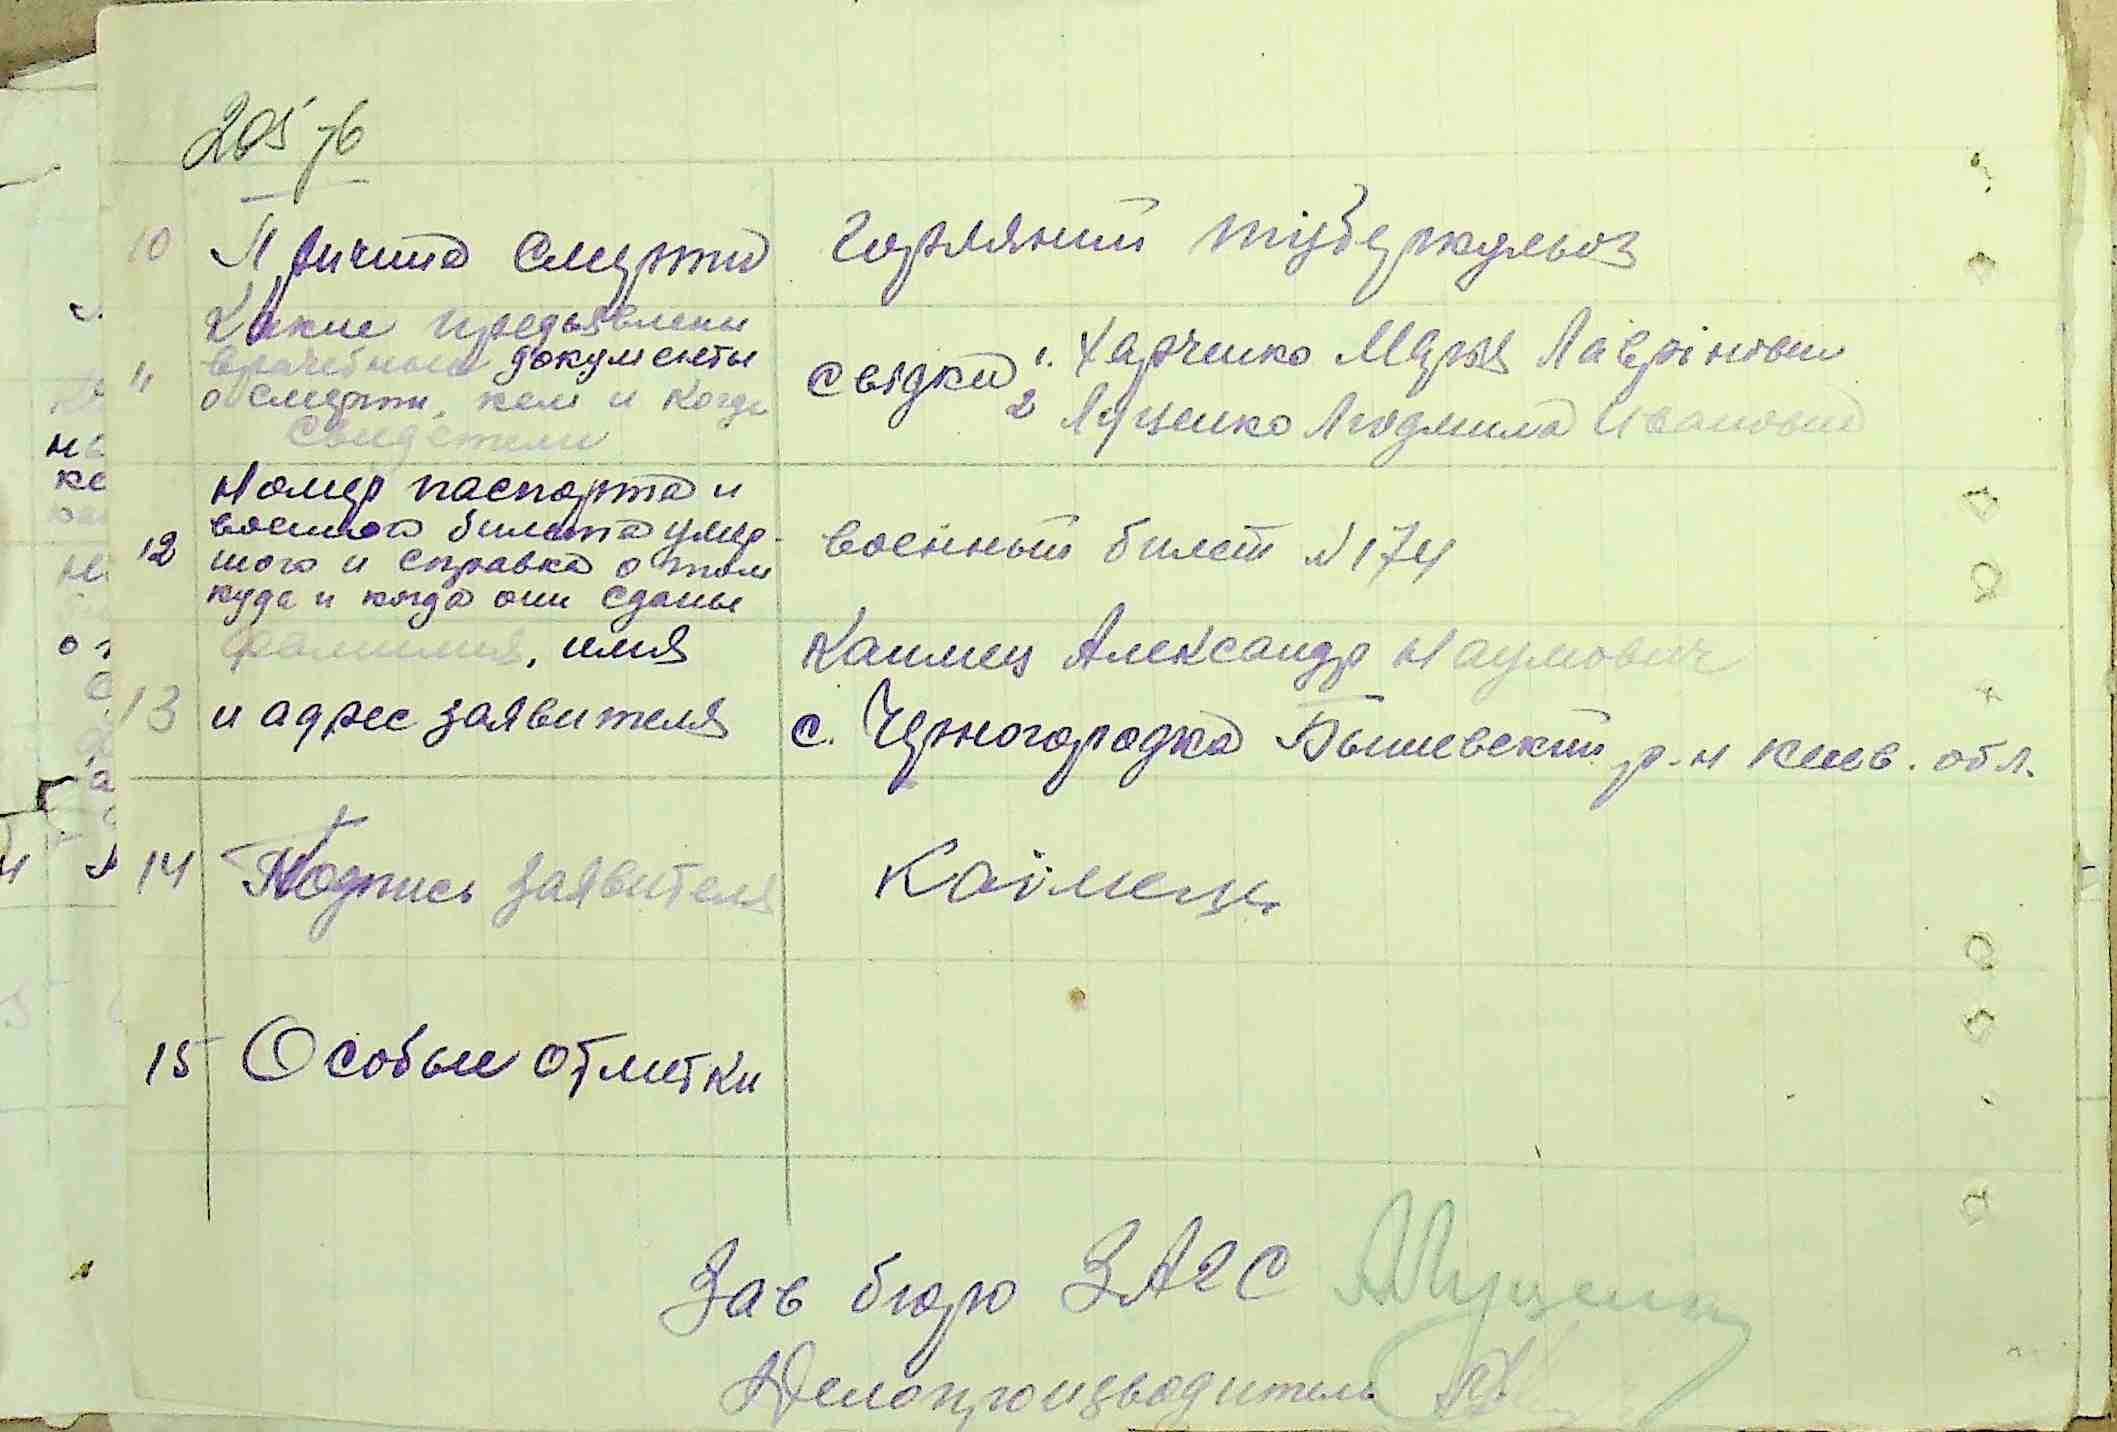 205 зв
10 Причина смерти Горляний туберкульоз
Какие предъявлены
врачебные документы
11 о смерти, кем и когда
свидетели
свідки 1. Харченко Марья Лавріновна
2 Луценко Людмила Ивановна
Номер паспорта и
военного билета умер-
12 шого и справка о том
куда и когда они сданы
военный билет №174
фамилия, имя Каимец Александр Наумович
13 и адрес заявителя с. Черногородка Бышевский р-н Киев. обл.
14 Подпись заявителя Каімець
15 Особые отметки
Зав бюро ЗАГС Луценко
Делопроизводитель